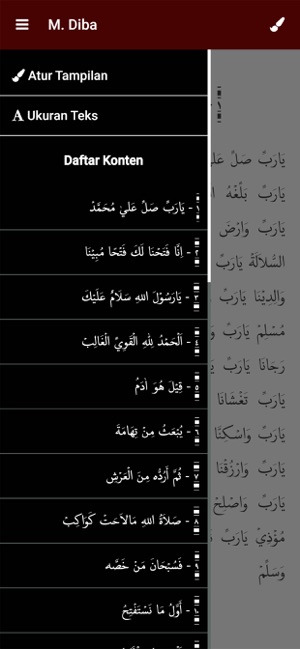 M. Diba
Atur Tampilan
Ukuran Teks
Daftar Konten
١ - يَارَبِّ صَلِّ عَلىٰ مُحَمَّدْ
٢ - اِنَّا فَتَحْنَا لَكَ فَتْحًا مُبِيْنَا
٣ - يَارَسُوْلَ اللهِ سَلَامٌ عَلَيْكَ
٤ - اَلْحَمْدُ لِلّٰهِ الْقَوِيِّ الْغَالِبْ
٥ - قِيْلَ هُوَ اٰدَمُ
٦ - يُبْعَثُ مِنْ تِهَامَةَ
٧ - ثُمَّ أَرُدُّه مِنَ الْعَرْشِ
٨ - صَلَاةُ اللهِ مَالَاحَتْ كَوَاكِبْ
٩ - فَسُبْحَانَ مَنْ خَصَّه
١٠ - أَوَّلُ مَا نَسْتَفْتِحُ
يَارَبِّ صَلِّ
يَارَبِّ بَلِّغْهُ
يَارَبِّ وَارْضَ
السُّلَالَةْ يَارَبِّ
وَالِدِيْنَا يَارَبِّ
مُسْلِمْ يَارَبِّ
رَجَانَا يَارَبِّ
يَارَبِّ تَغْشَانَا
يَارَبِّ وَاسْكِنَّا
يَارَبِّ وَارْزُقْنَا
يَارَبِّ وَاصْلِحْ
مُؤْذِيْ يَارَبِّ
وَسَلِّمْ